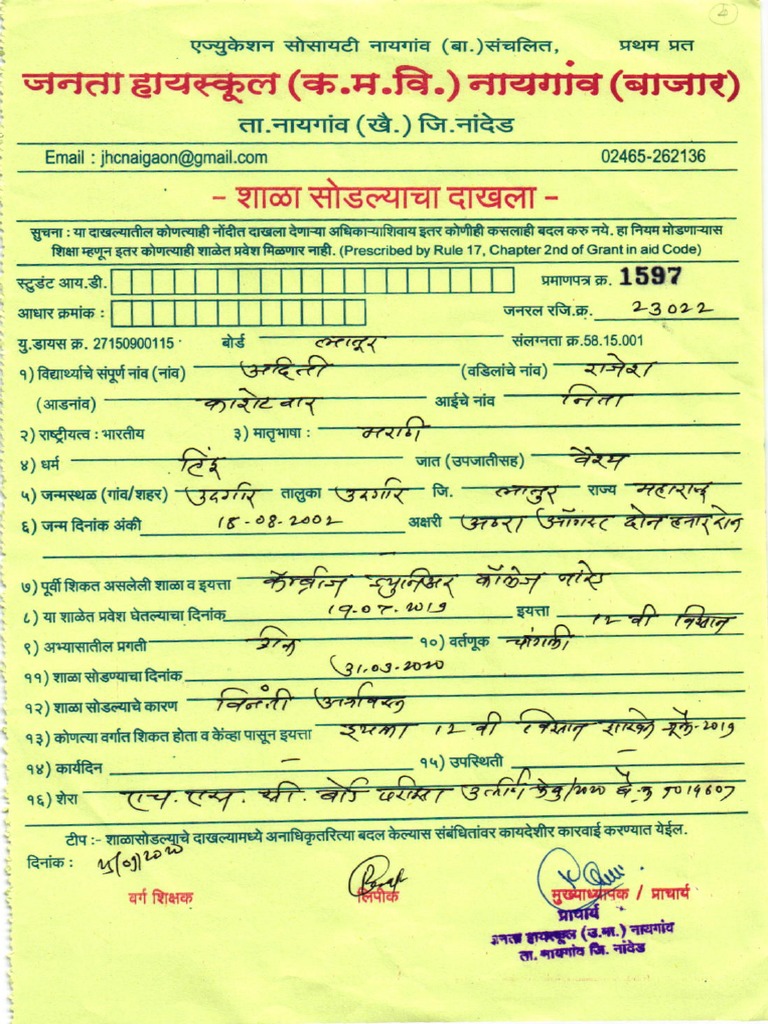 एज्युकेशन सोसायटी नायगांव (बा.)संचलित, प्रथम प्रत
जनता हायस्कूल (क.म.वि.) नायगांव (बाजार)
ता.नायगांव (खै.) जि.नांदेड
Email : jhcnaigaon@gmail.com 02465-262136
- शाळा सोडल्याचा दाखला -
सुचना : या दाखल्यातील कोणत्याही नोंदीत दाखला देणाऱ्या अधिकाऱ्याशिवाय इतर कोणीही कसलाही बदल करु नये. हा नियम मोडणाऱ्यास
शिक्षा म्हणून इतर कोणत्याही शाळेत प्रवेश मिळणार नाही. (Prescribed by Rule 17, Chapter 2nd of Grant in aid Code)
स्टुडंट आय.डी. प्रमाणपत्र क्र. 1597
आधार क्रमांक : जनरल रजि.क्र. 23022
यु.डायस क्र. 27150900115 बोर्ड लातूर संलग्नता क्र.58.15.001
१) विद्यार्थ्याचे संपूर्ण नांव (नांव) अदिती (वडिलांचे नांव) राजेश
(आडनांव) काशेटवार आईचे नांव निता
२) राष्ट्रीयत्व : भारतीय ३) मातृभाषा : मराठी
४) धर्म हिंदू जात (उपजातीसह) वैश्य
५) जन्मस्थळ (गांव/शहर) उदगीर तालुका उदगीर जि. लातुर राज्य महाराष्ट्र
६) जन्म दिनांक अंकी 18-08-2002 अक्षरी अठरा ऑगस्ट दोन हजार दोन
७) पूर्वी शिकत असलेली शाळा व इयत्ता ज्युनिअर कॉलेज
८) या शाळेत प्रवेश घेतल्याचा दिनांक 19-07-2019 इयत्ता 12 वी विज्ञान
९) अभ्यासातील प्रगती १०) वर्तणूक चांगली
११) शाळा सोडण्याचा दिनांक 31-03-2020
१२) शाळा सोडल्याचे कारण विनंती अर्जावरुन
१३) कोणत्या वर्गात शिकत होता व केंव्हा पासून इयत्ता इयत्ता 12 वी विज्ञान शाखेत जूलै-2019
१४) कार्यदिन – १५) उपस्थिती –
१६) शेरा एच.एस.सी. बोर्ड परीक्षा उत्तीर्ण फेब्रु/2020 बै.क्र
टीप :- शाळासोडल्याचे दाखल्यामध्ये अनाधिकृतरित्या बदल केल्यास संबंधितांवर कायदेशीर कारवाई करण्यात येईल.
दिनांक :
वर्ग शिक्षक लिपीक मुख्याध्यापक / प्राचार्य
प्राचार्य
जनता हायस्कूल (उ.मा.) नायगांव
ता. नायगांव जि. नांदेड